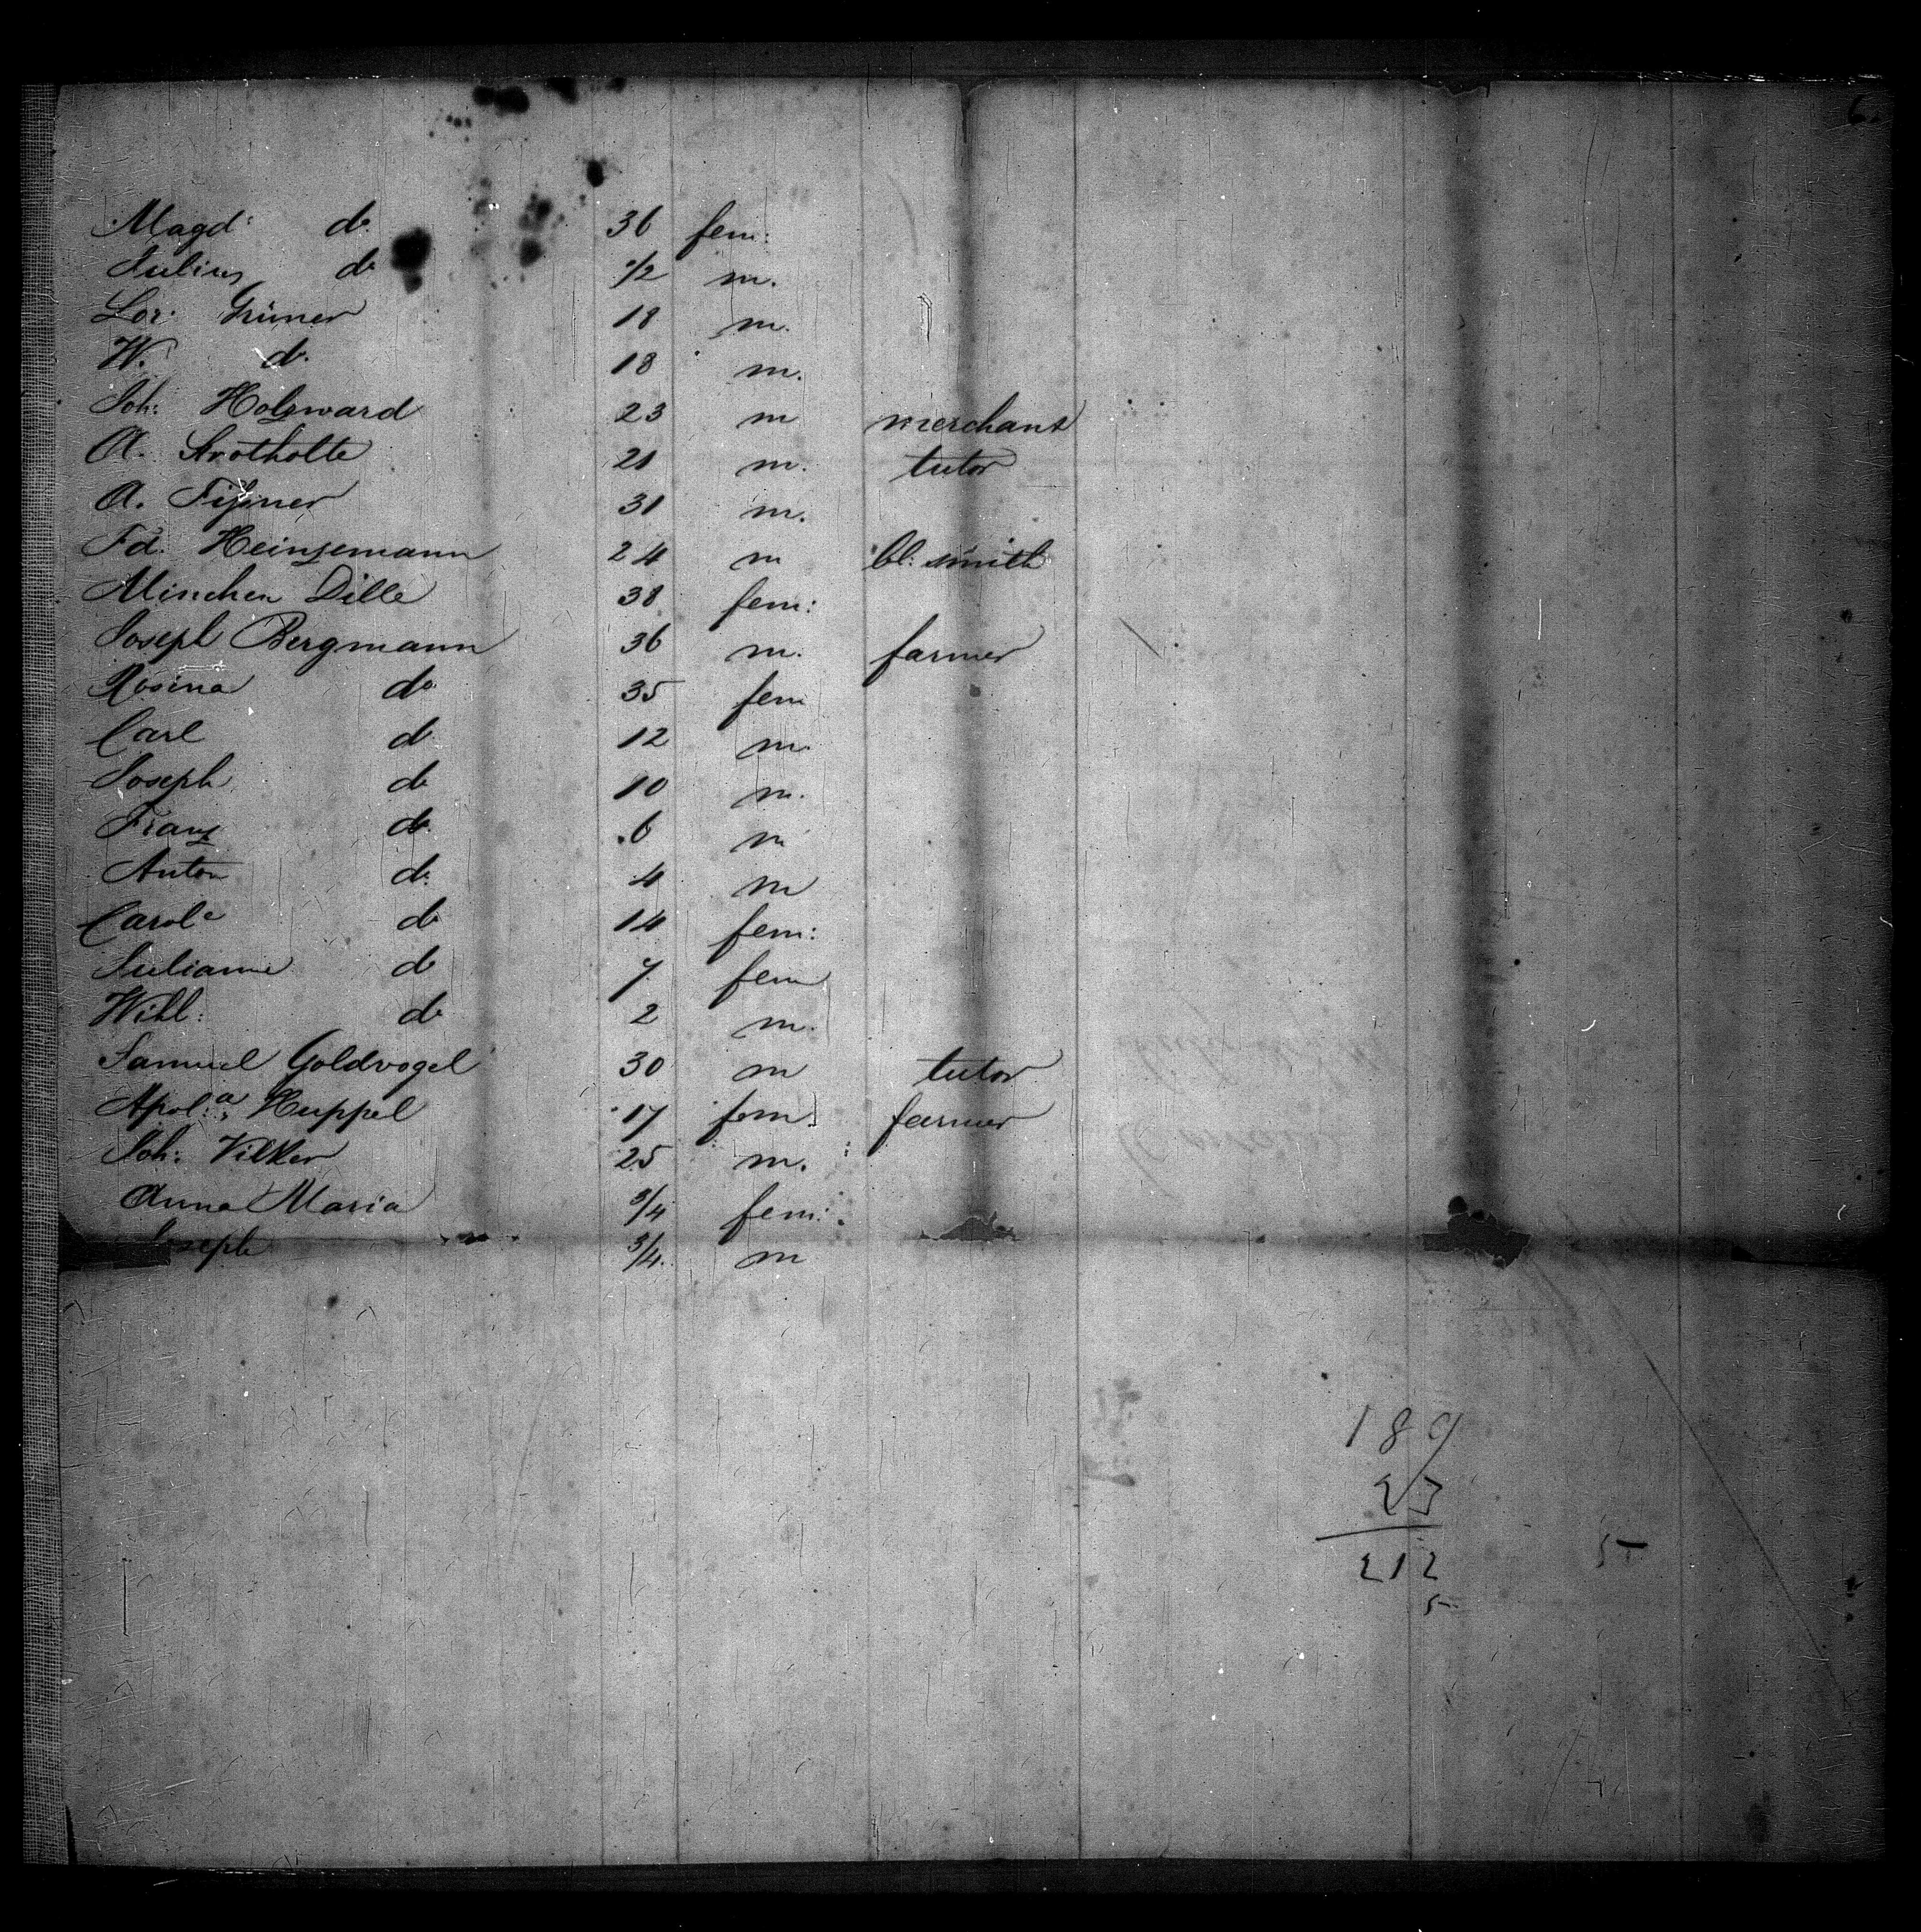 6.
Magd: do. 36 fem:
Julius do 1/2 m.
Lor: Grüner 18 m.
W. do. 18 m.
Joh: Holzward 23 m merchant
A. Strotholte 21 m. tutor
A. 31 m.
Fd. Heinzemann 24 m bl: smith
Minchen Dille 38 fem:
Joseph Bergmann 36 m. farmer
Rosina do 35 fem
Carl do 12 m.
Joseph do 10 m.
Franz do. 6 m
Anton do. 4 m
Carole do 14 fem:
Juliane do 7. fem
Wihl: do 2 m.
Samuel Goldvogel 30 m tutor
Apol:a Huppel 17 fem. farmer
Joh: Vilker 25 m.
Anna Maria 3/4 fem:
Joseph 3/4. m
189
23
212 5-
5-